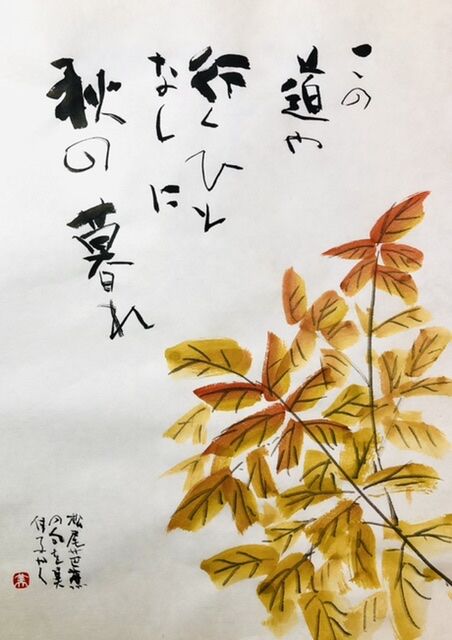 この
道や
行くひと
なしに
秋の暮れ
松尾芭蕉
の句を